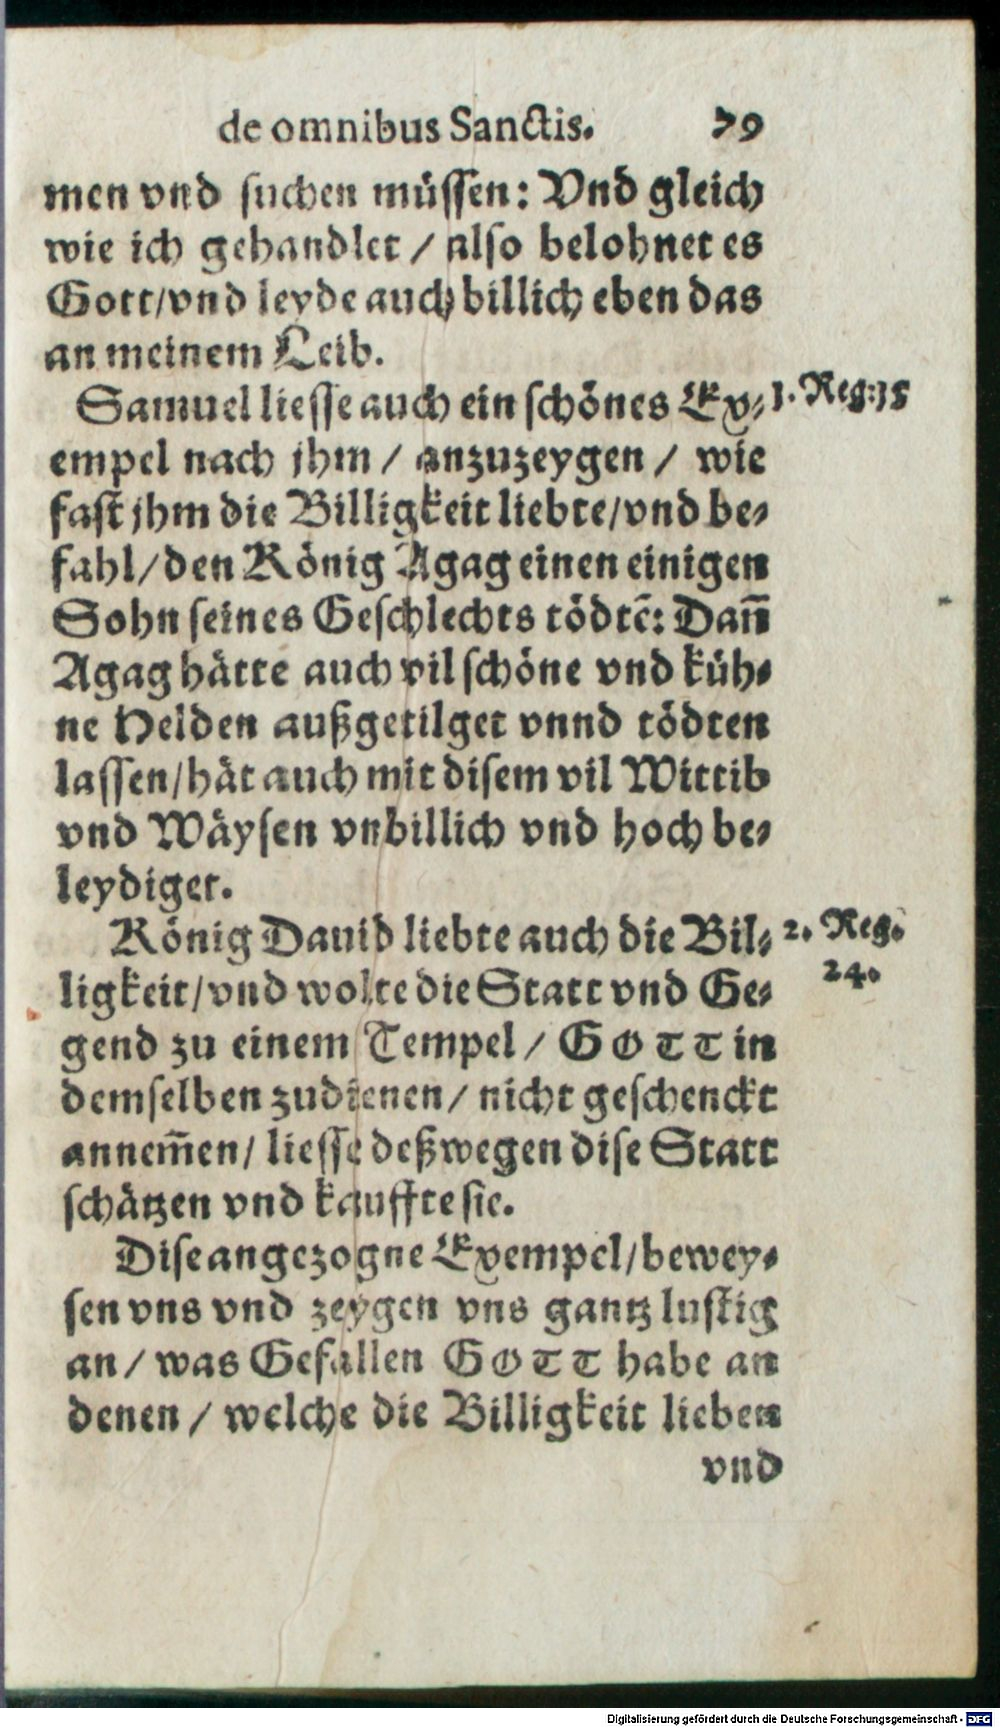 de omnibus Sanctis. 79
men vnd suchen müssen: Vnd gleich
wie ich gehandlet / also belohnet es
Gott/vnd leyde auch billich eben das
an meinem Leib.
Samuel liesse auch ein schönes Ex- 1. Reg: 15
empel nach jhm / anzuzeygen / wie
fast jhm die Billigkeit liebte/vnd be-
fahl/den König Agag einen einigen
Sohn seines Geschlechts tödtē: Dañ
Agag hätte auch vil schöne vnd küh-
ne Helden außgetilget vnnd tödten
lassen/hät auch mit disem vil Wittib
vnd Wäysen vnbillich vnd hoch be-
leydiget.
König Dauid liebte auch die Bil- 2. Reg.
ligkeit/vnd wolte die Statt vnd Ge- 24.
gend zu einem Tempel / GOTT in
demselben zudienen / nicht geschenckt
annem̃en/ liesse deßwegen dise Statt
schätzen vnd kauffte sie.
Dise angezogne Exempel/bewey-
sen vns vnd zeygen vns gantz lustig
an / was Gefallen GOTT habe an
denen / welche die Billigkeit lieben
vnd
Digitalisierung gefördert durch die Deutsche Forschungsgemeinschaft - DFG